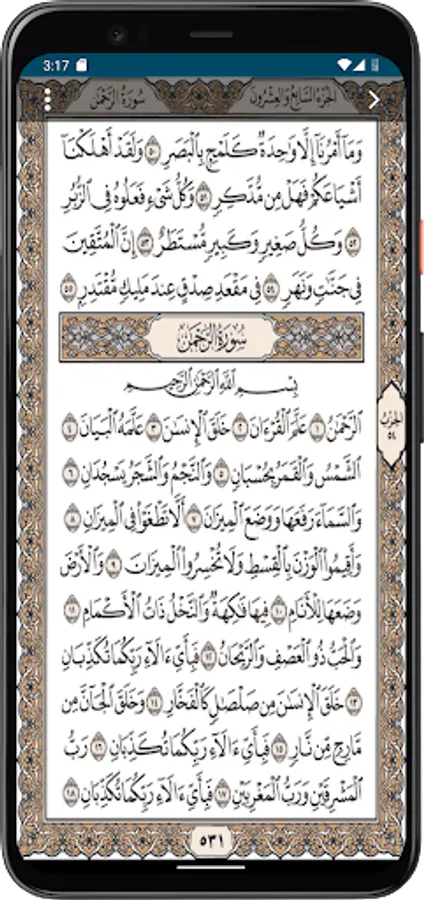 3:17
الجزء السابع والعشرون
سورة الرحمن
وَمَآ أَمْرُنَآ إِلَّا وَٰحِدَةٌ كَلَمْحٍۭ بِٱلْبَصَرِ ٥٠ وَلَقَدْ أَهْلَكْنَآ
أَشْيَاعَكُمْ فَهَلْ مِن مُّدَّكِرٍ ٥١ وَكُلُّ شَىْءٍ فَعَلُوهُ فِى ٱلزُّبُرِ
٥٢ وَكُلُّ صَغِيرٍ وَكَبِيرٍ مُّسْتَطَرٌ ٥٣ إِنَّ ٱلْمُتَّقِينَ
فِى جَنَّٰتٍ وَنَهَرٍ ٥٤ فِى مَقْعَدِ صِدْقٍ عِندَ مَلِيكٍ مُّقْتَدِرٍۭ ٥٥
سُورَةُ الرَّحْمَٰن
بِسْمِ ٱللَّهِ ٱلرَّحْمَٰنِ ٱلرَّحِيمِ
ٱلرَّحْمَٰنُ ١ عَلَّمَ ٱلْقُرْءَانَ ٢ خَلَقَ ٱلْإِنسَٰنَ ٣ عَلَّمَهُ ٱلْبَيَانَ ٤
ٱلشَّمْسُ وَٱلْقَمَرُ بِحُسْبَانٍ ٥ وَٱلنَّجْمُ وَٱلشَّجَرُ يَسْجُدَانِ ٦
وَٱلسَّمَآءَ رَفَعَهَا وَوَضَعَ ٱلْمِيزَانَ ٧ أَلَّا تَطْغَوْا۟ فِى ٱلْمِيزَانِ ٨
وَأَقِيمُوا۟ ٱلْوَزْنَ بِٱلْقِسْطِ وَلَا تُخْسِرُوا۟ ٱلْمِيزَانَ ٩ وَٱلْأَرْضَ
وَضَعَهَا لِلْأَنَامِ ١٠ فِيهَا فَٰكِهَةٌ وَٱلنَّخْلُ ذَاتُ ٱلْأَكْمَامِ ١١
وَٱلْحَبُّ ذُو ٱلْعَصْفِ وَٱلرَّيْحَانُ ١٢ فَبِأَىِّ ءَالَآءِ رَبِّكُمَا تُكَذِّبَانِ
١٣ خَلَقَ ٱلْإِنسَٰنَ مِن صَلْصَٰلٍ كَٱلْفَخَّارِ ١٤ وَخَلَقَ ٱلْجَآنَّ مِن
مَّارِجٍ مِّن نَّارٍ ١٥ فَبِأَىِّ ءَالَآءِ رَبِّكُمَا تُكَذِّبَانِ ١٦ رَبُّ
ٱلْمَشْرِقَيْنِ وَرَبُّ ٱلْمَغْرِبَيْنِ ١٧ فَبِأَىِّ ءَالَآءِ رَبِّكُمَا تُكَذِّبَانِ ١٨
الحزب
٥٤
٥٣١